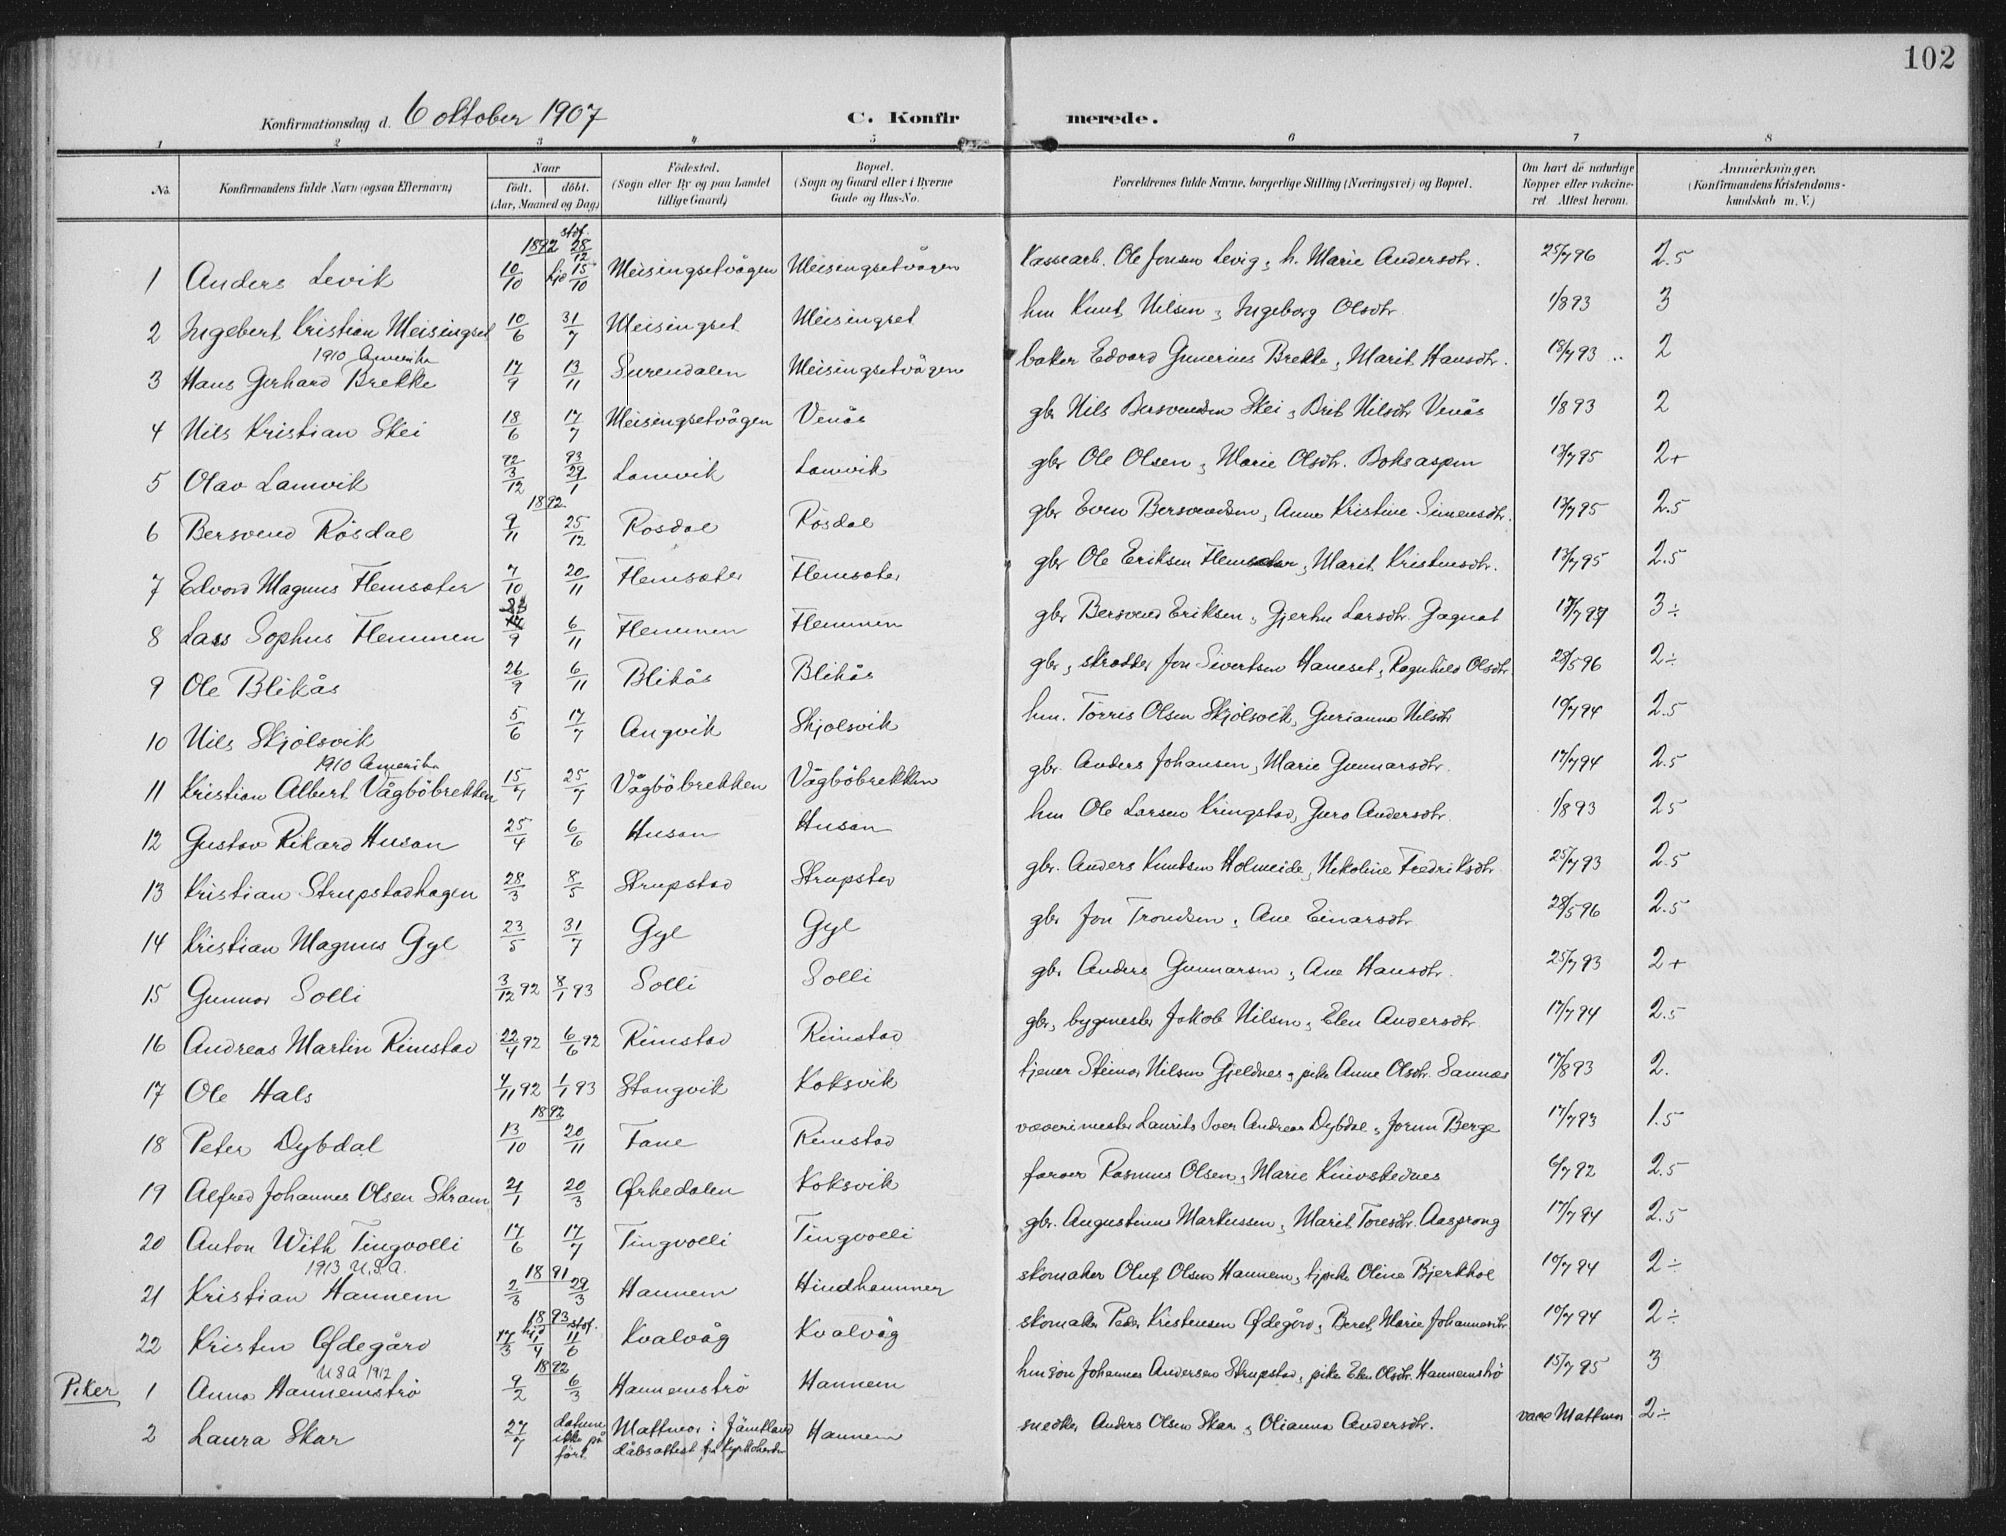 102
Konfirmationsdag d. 6 oktober 1907 C. Konfirmerede.
1 2 3 4 5 6 7 8
No. Konfirmandens fulde Navn (ogsaa Efternavn) Naar født. døbt. (Aar, Maaned og Dag) Fødested. (Sogn eller By og paa Landet tillige Gaard) Bopæl. (Sogn og Gaard eller i Byerne Gade og Hus-No. Forældrenes fulde Navne, borgerlige Stilling (Næringsvei) og Bopæl. Om havt de naturlige Kopper eller vakcineret. Attest herom. Anmærkninger. (Konfirmandens Kristendomskundskab m. V.)
1892 stdf. 28/12
1 Anders Levik 10/10 hjd 15/10 Meisingsetvågen Meisingsetvågen Kassearb. Ole Jonsen Levig, h. Marie Andersdtr. 25/7 96 2.5
2 Ingebert Kristian Meisingset 10/6 31/7 Meisingset Meisingset hm Knut Nilsen, Ingeborg Olsdtr. 1/8 93 3
1910 Amerika
3 Hans Gerhard Brekke 17/9 13/11 Surendalen Meisingsetvågen baker Edvard Gunerius Brekke, Marit Hansdtr. 18/7 93 .. 2
4 Nils Kristian Skei 18/6 17/7 Meisingsetvågen Venås gbr Nils Bersvendsen Skei, Brit Nilsdtr Venås 1/8 93 2
5 Olav Lamvik 92 3/12 93 29/1 Lamvik Lamvik gbr Ole Olsen, Marie Olsdtr. Boksaspen 13/7 95 2+
1892
6 Bersvend Røsdal 9/11 25/12 Røsdal Røsdal gbr Even Bersvendsen, Anne Kristine Simensdtr. 13/7 95 2.5
7 Edvard Magnus Flemsæter 7/10 20/11 Flemsæter Flemsæter gbr Ole Eriksen Flemsæter, Marit Kristensdtr. 13/7 95 2.5
8 Lars Sophus Flemmen 23/9 6/11 Flemmen Flemmen gbr Bersvend Eriksen, Gjertru Larsdtr. Gagnat 17/7 94 3÷
9 Ole Blikås 26/9 6/11 Blikås Blikås gbr, skrædder Jon Sivertsen Haneset, Ragnhild Olsdtr 28/5 96 2÷
10 Nils Skjølsvik 5/6 17/7 Angvik Skjølsvik hm. Torris Olsen Skjølsvik, Gurianna Nilsdtr 10/7 94 2.5
1910 Amerika
11 Kristian Albert Vågbøbrekken 15/4 25/7 Vågbøbrekken Vågbøbrekken gbr. Anders Johansen, Marie Gunnarsdtr. 17/7 94 2.5
12 Gustav Rikard Husan 25/4 6/6 Husan Husan hm Ole Larsen Kringstad, Guro Andersdtr. 1/8 93 2.5
13 Kristian Strupstadhagen 28/3 8/5 Strupstad Strupstad gbr. Anders Knutsen Holmeide, Nekoline Fredriksdtr. 25/7 93 2.5
14 Kristian Magnus Gyl 23/5 31/7 Gyl Gyl gbr Jon Trondsen, Ane Einarsdtr. 28/5 96 2.5
15 Gunnar Solli 3/12 92 8/1 93 Solli Solli gbr Anders Gunnarsen, Ane Hansdtr. 25/7 93 2+
16 Andreas Martin Rimstad 22/4 92 6/6 92 Rimstad Rimstad gbr, bygmester Jakob Nilsen, Elen Andersdtr. 17/7 94 2.5
17 Ole Hals 4/11 92 1/1 93 Stangvik Koksvik tjener Steinar Nilsen Gjeldnes, pike Anne Olsdtr. Sannæs 17/8 93 2.
1892
18 Peter Dybdal 13/10 20/11 Fane Rimstad væverimester Laurits Iver Andreas Dybdal, Jorun Berge 17/7 93 1.5
19 Alfred Johannes Olsen Skram 21/1 20/3 Ørkedalen Koksvik farver Rasmus Olsen, Marie Knivskednes 6/7 92 2.5
20 Anton With Tingvolli 17/6 17/7 Tingvolli Tingvolli gbr. Augustinus Markussen, Marit Toresdtr. Aasprong 17/7 94 2.5
1913 U.S.A. 1891
21 Kristian Hannem 2/3 29/3 Hannem Hindhammer skomaker Oluf Olsen Hannem, tj.pike Oline Bjerkhol 10/7 94 2÷
1893 stdf.
22 Kristen Ødegård 17/3 hjd 1/4 11/6 Kvalvåg Kvalvåg skomaker Peder Kristensen Ødegård, Beret Marie Johannesdtr 10/7 94 2÷
U S A 1912 1892
Piker 1 Anna Hannemstrø 9/2 6/3 Hannemstrø Hannem hmsøn Johannes Andersen Strupstad, pike Elen Olsdtr. Hannemstrø 15/7 95 3
2 Laura Skar 27/7 datum ikke påført Mattmar i Jämtland dåbsattest fra Kyrkoherden Hannem snedker Anders Olsen Skar, Olianna Andersdtr. vacc Mattmar 2÷